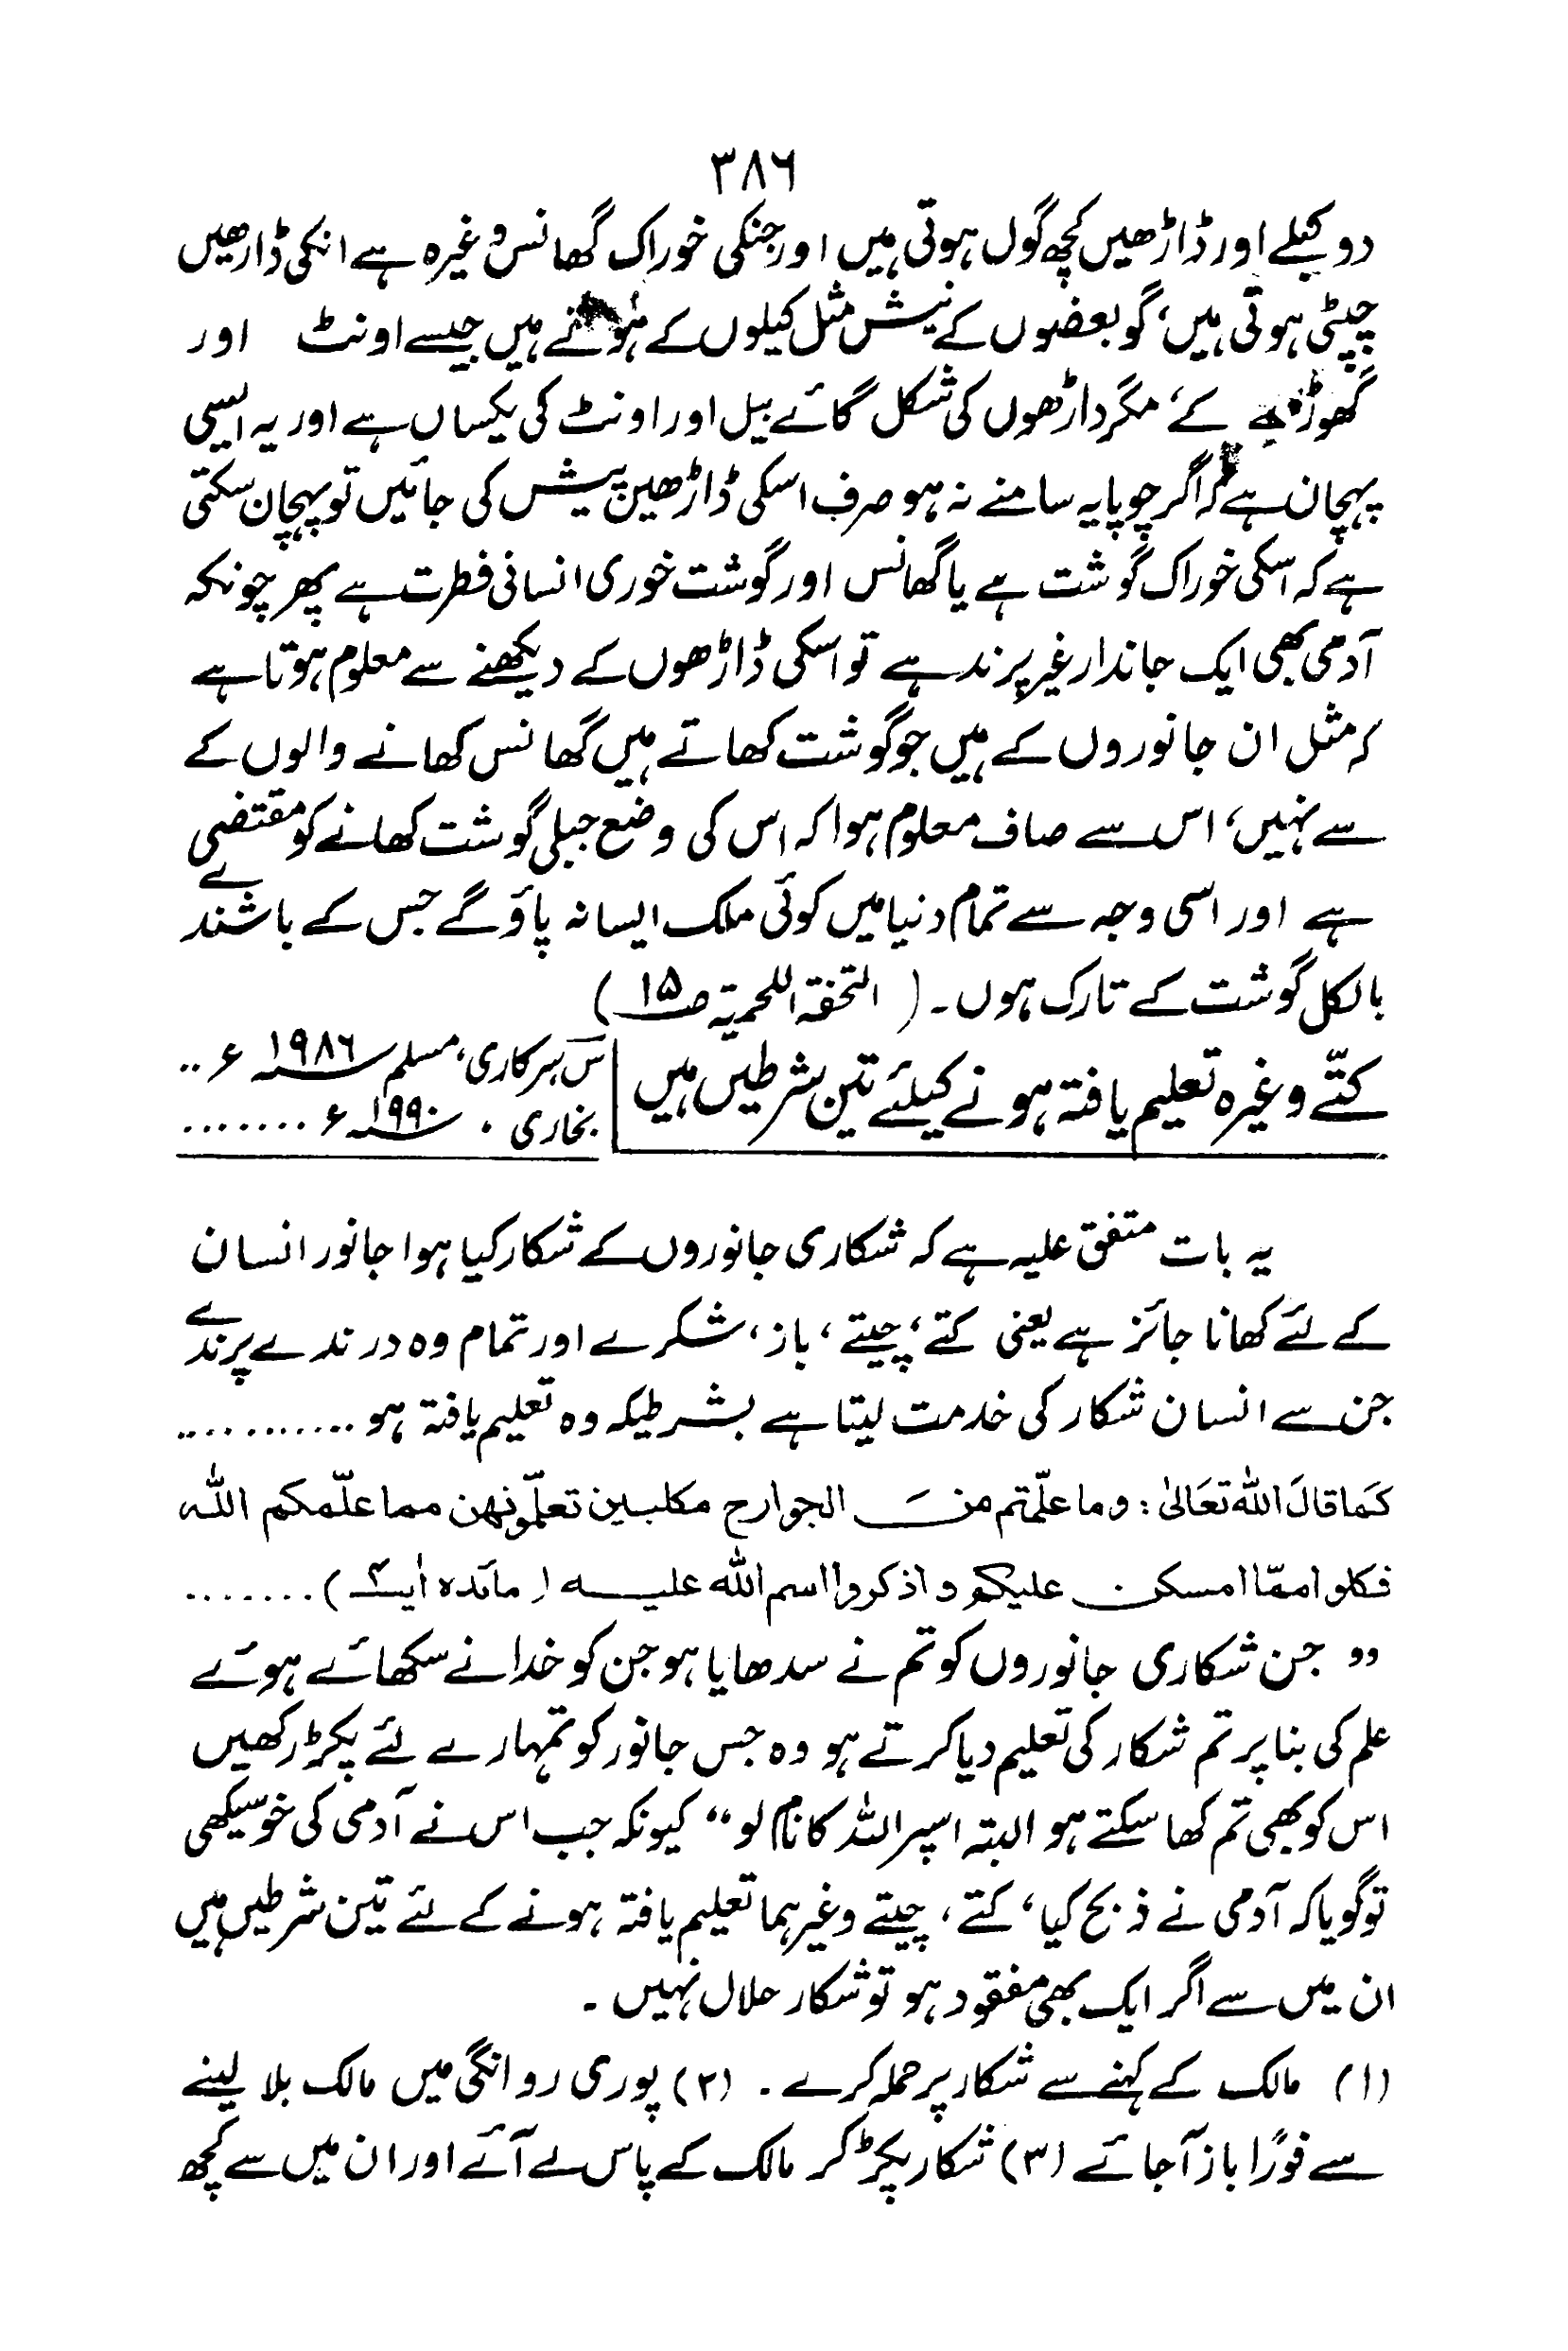 ۳۸۶
دو کیلے اور ڈاڑھیں کچھ گول ہوتی ہیں اور جنکی خوراک گھانس وغیرہ ہے انکی ڈارھیں
چپٹی ہوتی ہیں، گو بعضوں کے نیش مثل کیلوں کے ہوتے ہیں جیسے اونٹ اور
گھوڑے کے، مگر داڑھوں کی شکل گائے بیل اور اونٹ کی یکساں ہے اور یہ ایسی
پہچان ہے کہ اگر چوپایہ سامنے نہ ہو صرف اسکی ڈاڑھیں پیش کی جائیں تو پہچان سکتی
ہے کہ اسکی خوراک گوشت ہے یا گھانس اور گوشت خوری انسانی فطرت ہے پھر چونکہ
آدمی بھی ایک جاندار غیر پرند ہے تو اسکی ڈاڑھوں کے دیکھنے سے معلوم ہوتا ہے
کہ مثل ان جانوروں کے ہیں جو گوشت کھاتے ہیں گھانس کھانے والوں کے
سے نہیں، اس سے صاف معلوم ہوا کہ اس کی وضع جبلی گوشت کھانے کو مقتضی
ہے اور اسی وجہ سے تمام دنیا میں کوئی ملک ایسا نہ پاؤگے جس کے باشندے
بالکل گوشت کے تارک ہوں۔ (التحفۃ اللحمیۃ صـ ۱۵)
کتّے وغیرہ تعلیم یافتہ ہونے کیلئے تین شرطیں ہیں
س سرکاری، مسلم سنہ ۱۹۸۶ ء ..
بخاری . سنہ ۱۹۹۰ ء .......
یہ بات متفق علیہ ہے کہ شکاری جانوروں کے شکار کیا ہوا جانور انسان
کے لئے کھانا جائز ہے یعنی کتے، چیتے، باز، شکرے اور تمام وہ درندے پرندے
جن سے انسان شکار کی خدمت لیتا ہے بشرطیکہ وہ تعلیم یافتہ ہو ...........
کَمَا قالَ اللہ تعَالیٰ: وما علّمتم منَ الجوارح مکلبین تعلّمونھن مما علّمکم اللہ
فکلوا ممّا امسکن علیکم و اذکروا اسم اللہ علیہ (مائدہ اٰیت ۴) .......
”جن شکاری جانوروں کو تم نے سدھایا ہو جن کو خدا نے سکھائے ہوئے
علم کی بنا پر تم شکار کی تعلیم دیا کرتے ہو وہ جس جانور کو تمہارے لئے پکڑ رکھیں
اس کو بھی تم کھا سکتے ہو البتہ اسپر اللہ کا نام لو“ کیونکہ جب اس نے آدمی کی خو سیکھی
تو گویا کہ آدمی نے ذبح کیا، کتے، چیتے وغیرہما تعلیم یافتہ ہونے کے لئے تین شرطیں ہیں
ان میں سے اگر ایک بھی مفقود ہو تو شکار حلال نہیں ۔
(۱) مالک کے کہنے سے شکار پر حملہ کرے ۔ (۲) پوری روانگی میں مالک بلا لینے
سے فورًا باز آجائے (۳) شکار پکڑ کر مالک کے پاس لے آئے اور ان میں سے کچھ